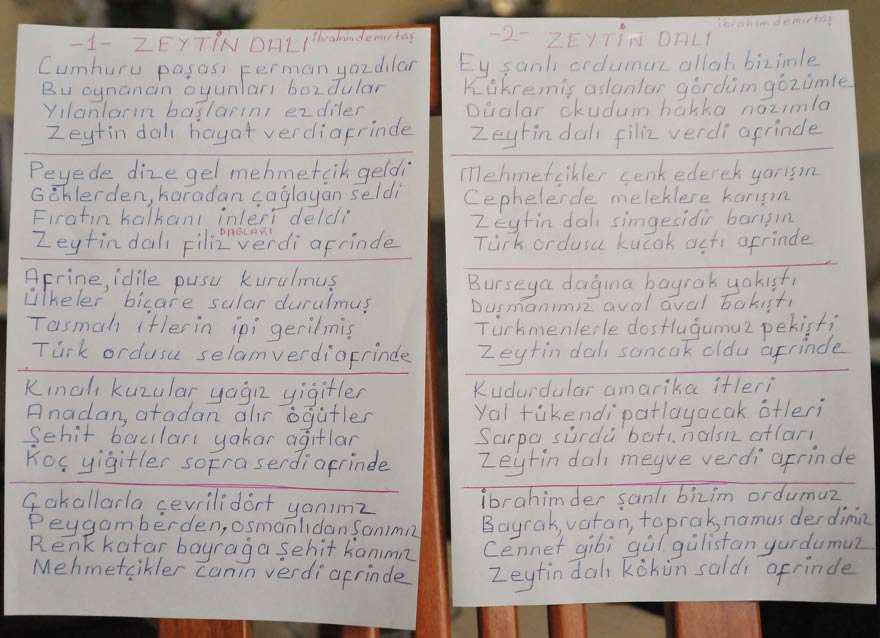 -1- ZEYTİN DALI ibrahim demirtaş
Cumhuru paşası ferman yazdılar
Bu oynanan oyunları bozdular
Yılanların başlarını ezdiler
Zeytin dalı hayat verdi afrinde
Peyede dize gel mehmetçik geldi
Göklerden, karadan çağlayan seldi
Fıratın kalkanı inleri deldi
DAĞLARI
Zeytin dalı filiz verdi afrinde
Afrine, idile pusu kurulmuş
Ülkeler biçare sular durulmuş
Tasmalı itlerin ipi gerilmiş
Türk ordusu selam verdi afrinde
Kınalı kuzular yağız yiğitler
Anadan, atadan alır öğütler
Şehit bacıları yakar ağıtlar
Koç yiğitler sofra serdi afrinde
Çakallarla çevrili dört yanımız
Peygamberden, osmanlıdan şanımız
Renk katar bayrağa şehit kanımız
Mehmetçikler canın verdi afrinde
-2- ZEYTİN DALI ibrahim demirtaş
Ey şanlı ordumuz allah bizimle
Kükremiş aslanlar gördüm gözümle
Düalar okudum hakka nazımla
Zeytin dalı filiz verdi afrinde
Mehmetçikler cenk ederek yarışın
Cephelerde meleklere karışın
Zeytin dalı simgesidir barışın
Türk ordusu kucak açtı afrinde
Burseya dağına bayrak yakıştı
Düşmanımız aval aval bakıştı
Türkmenlerle dostluğumuz pekişti
Zeytin dalı sancak oldu afrinde
Kudurdular amarika itleri
Yal tükendi patlayacak ötleri
Sarpa sürdü batı nalsız atları
Zeytin dalı meyve verdi afrinde
İbrahim der şanlı bizim ordumuz
Bayrak, vatan, toprak, namus derdimiz
Cennet gibi gül gülistan yurdumuz
Zeytin dalı kökün saldı afrinde